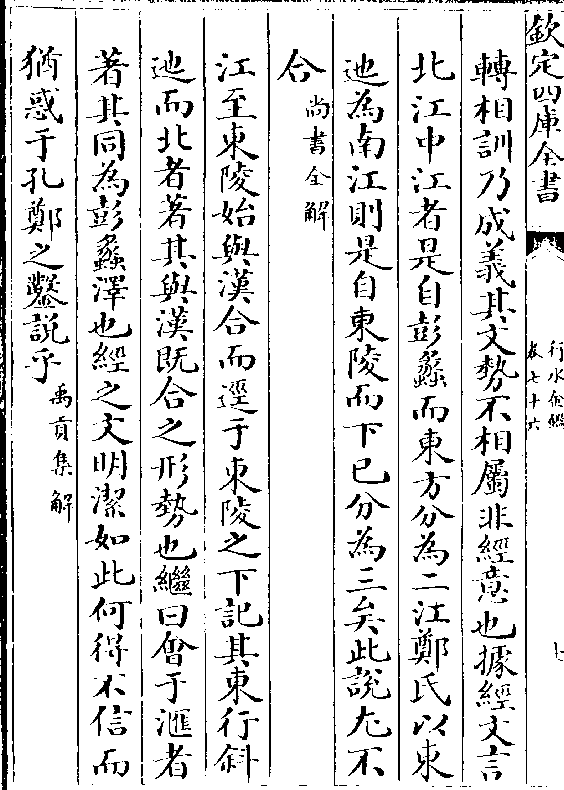 欽定四庫全書
行水金鑑
卷七十六
七
轉相訓乃成義其文勢不相屬非經意也據經文言
北江中江者是自彭蠡而東方分為二江鄭氏以東
迆為南江則是自東陵而下已分為三矣此說尤不
合尚書全解
江至東陵始與漢合而逕于東陵之下記其東行斜
迆而北者著其與漢既合之形勢也繼曰會于滙者
著其同為彭蠡澤也經之文明潔如此何得不信而
猶惑于孔鄭之鑿說乎禹貢集解